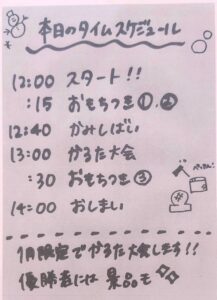 本日のタイムスケジュール
12:00 スタート!!
:15 おもちつき①,②
12:40 かみしばい
13:00 かるた大会
:30 おもちつき③
ぺったん!
14:00 おしまい
1月限定でかるた大会します!!
優勝者には景品も